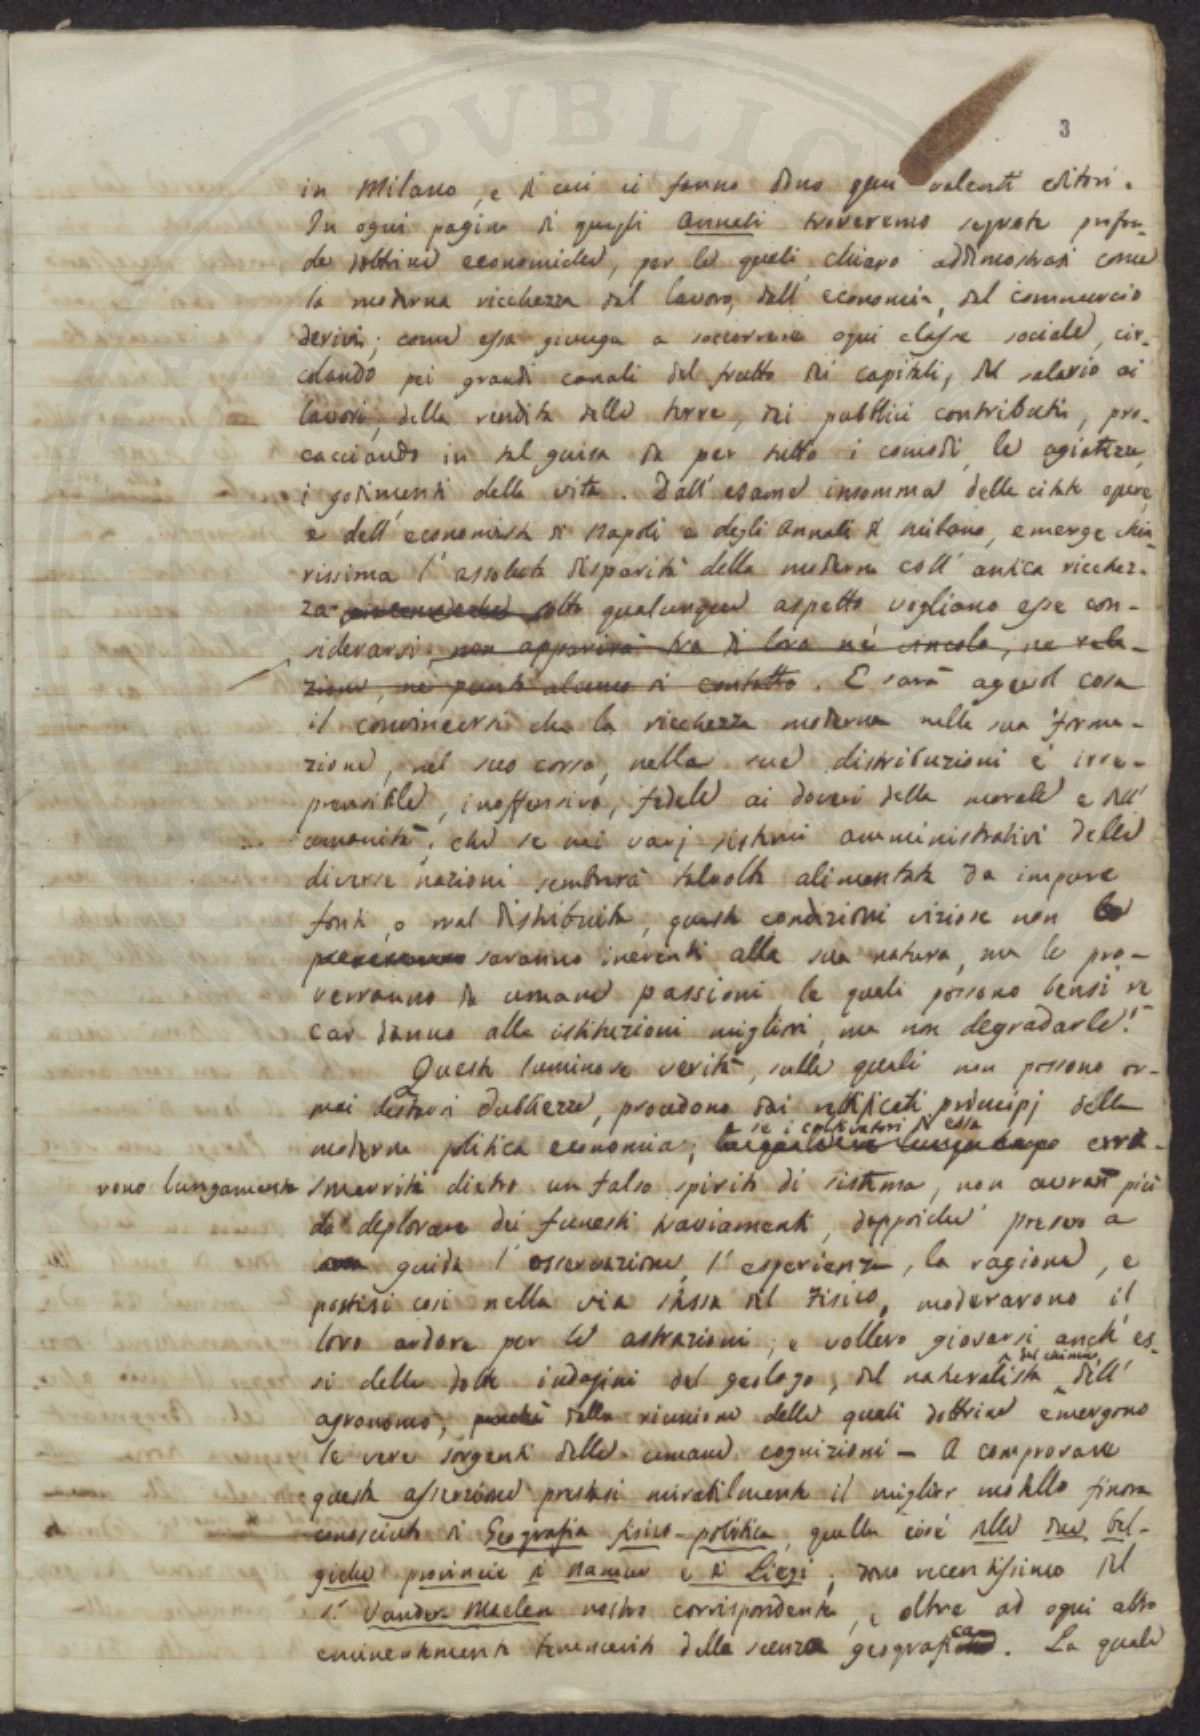 PVBLIC
3
in Milano, e di cui ci fanno dono que' valenti editori.
In ogni pagina di questi Annali troveremo segnate profon-
de dottrine economiche, per le quali chiaro addimostrasi come
la moderna ricchezza dal lavoro, dall' economia, dal commercio
derivi; come essa giunga a soccorrere ogni classe sociale, cir-
colando pei grandi canali del frutto dei capitali, del salario ai
lavori, della rendita delle terre, dei pubblici contributi, pro-
cacciando in tal guisa da per tutto i comodi, le agiatezze,
i godimenti della vita. Dall' esame insomma delle citate opere
e dell' economista di Napoli e degli Annali di Milano, emerge chia-
rissima l' assoluta disparità della moderna coll' antica ricchez-
za sotto qualunque aspetto vogliano esse con-
siderarsi; non apparirà tra di loro nè vincolo, ne rela-
zione, ne punto alcuno di contatto. E sarà agevol cosa
il convincersi che la ricchezza moderna nella sua forma-
zione, nel suo corso, nelle sue distribuzioni è irre-
prensibile, inoffensiva, fedele ai doveri della morale e dell'
umanità; che se nei varj sistemi amministrativi delle
diverse nazioni sembrerà talvolta alimentata da impure
fonti, o mal distribuita, queste condizioni viziose non le
saranno inerenti alla sua natura, ma le pro-
verranno da umane passioni, le quali possono bensì re
car danno alle istituzioni migliori, ma non degradarle.
Queste luminose verità, sulle quali non possono or-
mai destarsi dubbiezze, procedono dai rettificati principj della
se i coltivatori di essa
moderna politica economia; erra-
rono lungamente smarriti dietro un falso spirito di sistema, non avran più
da deplorare dei funesti traviamenti, doppoichè presero a
guida l' osservazione, l' esperienza, la ragione, e
postisi così nella via stessa del Fisico, moderarono il
loro ardore per le astrazioni, e vollero giovarsi anch' es-
si delle dotte indagini del geologo, del naturalista, del chimico, dell'
agronomo, dalla riunione delle quali dottrine emergono
le vere sorgenti delle umane cognizioni – A comprovare
questa asserzione prestasi mirabilmente il miglior modello finora
conosciuto di Geografia fisico-politica, quella cioè delle due bel-
giche provincie di Namur e di Liegi, dono recentissimo del
S.r Vander Maelen nostro corrispondente, e oltre ad ogni altro
eminentemente benemerito della scienza geografica. La quale